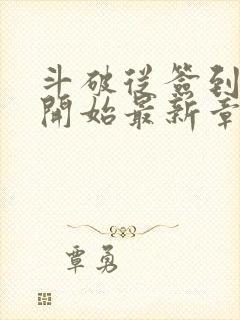 斗破從簽到
開始最新章
覃勇